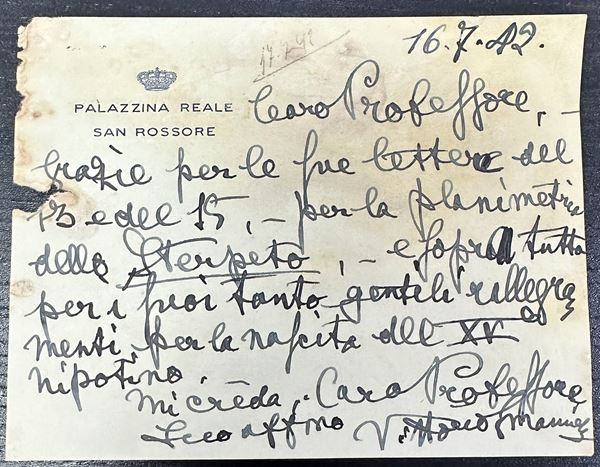 16.7.42.
17.7.42
PALAZZINA REALE
SAN ROSSORE
Caro Professore, –
Grazie per le sue lettere del
13 e del 15, – per la planimetria
dello Sterpeto, – e sopra tutto
per i suoi tanto gentili rallegra
menti, per la nascita del XV
nipotino.
Mi creda, Caro Professore
Suo affmo Vittorio Emanuele